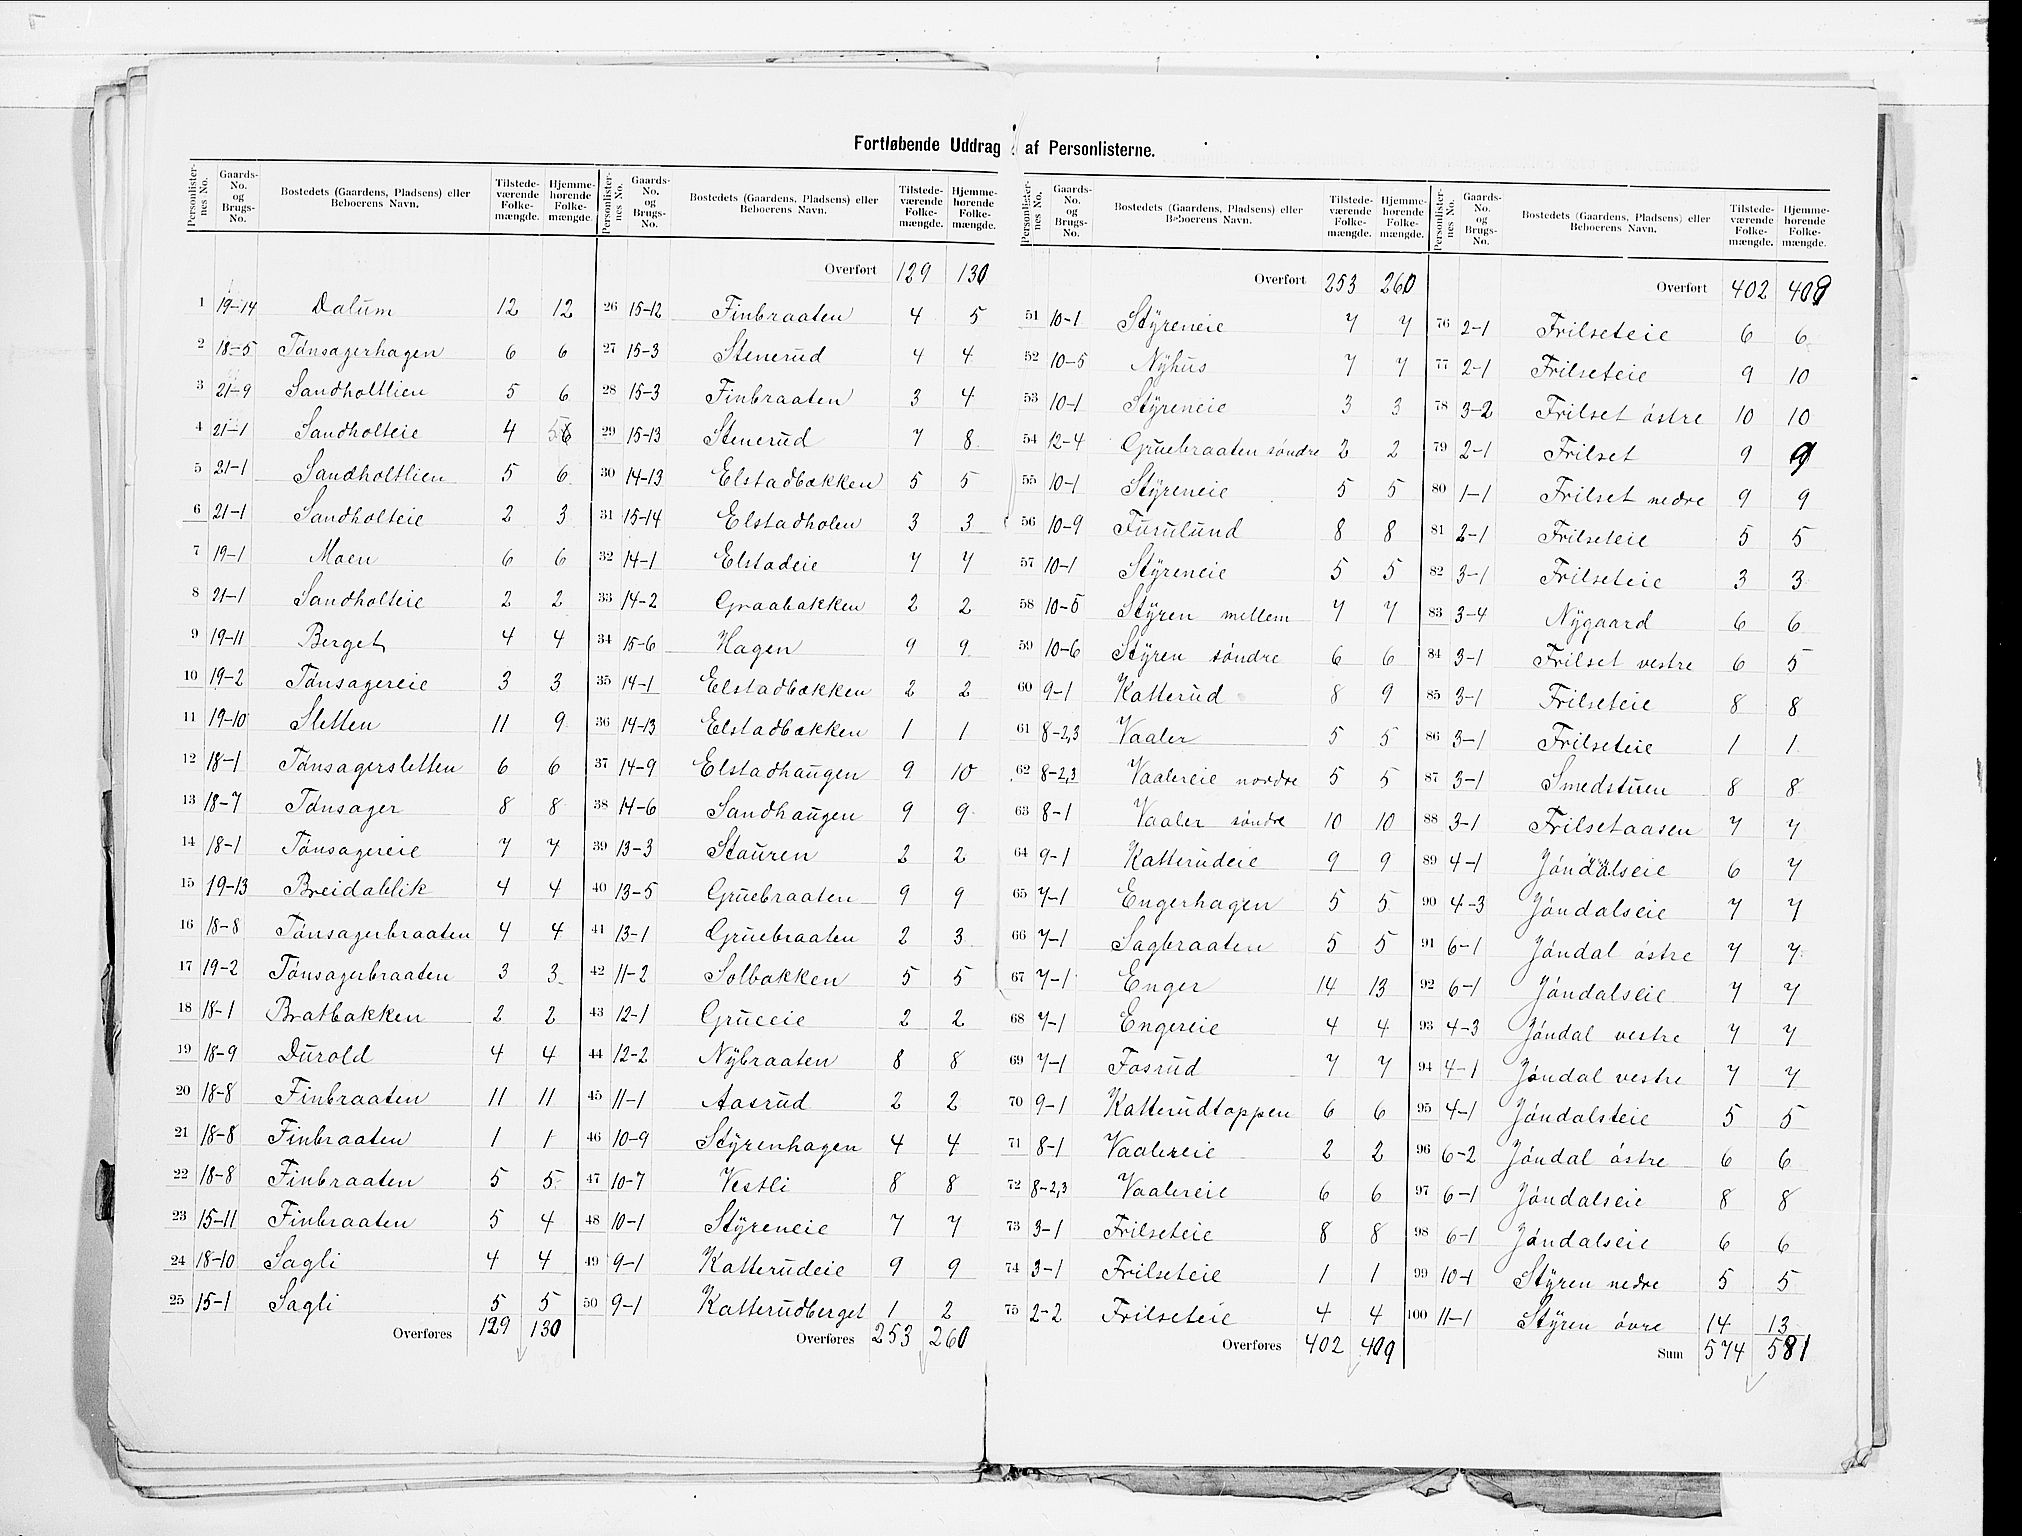 Fortløbende Uddrag af Personlisterne.
Personlisternes No. Gaards-No. og Brugs-No. Bostedets (Gaardens, Pladsens) eller Beboerens Navn. Tilstedeværende Folkemængde. Hjemmehørende Folkemængde.
1 19-14 Dalum 12 12
2 18-5 Tønsagerhagen 6 6
3 21-9 Sandholtlien 5 6
4 21-1 Sandholteie 4 6
5 21-1 Sandholtlien 5 6
6 21-1 Sandholteie 2 3
7 19-1 Moen 6 6
8 21-1 Sandholteie 2 2
9 19-11 Berget 4 4
10 19-2 Tønsagereie 3 3
11 19-10 Sletten 11 9
12 18-1 Tønsagersletten 6 6
13 18-7 Tønsager 8 8
14 18-1 Tønsagereie 7 7
15 19-13 Breidablik 4 4
16 18-8 Tønsagerbraaten 4 4
17 19-2 Tønsagerbraaten 3 3
18 18-1 Bratbakken 2 2
19 18-9 Durold 4 4
20 18-8 Finbraaten 11 11
21 18-8 Finbraaten 1 1
22 18-8 Finbraaten 5 5
23 15-11 Finbraaten 5 4
24 18-10 Sagli 4 4
25 15-1 Sagli 5 5
Overføres 129 130
Personlisternes No. Gaards-No. og Brugs-No. Bostedets (Gaardens, Pladsens) eller Beboerens Navn. Tilstedeværende Folkemængde. Hjemmehørende Folkemængde.
Overført 129 130
26 15-12 Finbraaten 4 5
27 15-3 Stenerud 4 4
28 15-3 Finbraaten 3 4
29 15-13 Stenerud 7 8
30 14-13 Elstadbakken 5 5
31 15-14 Elstadholen 3 3
32 14-1 Elstadeie 7 7
33 14-2 Graabakken 2 2
34 15-6 Hagen 9 9
35 14-1 Elstadbakken 2 2
36 14-13 Elstadbakken 1 1
37 14-9 Elstadhaugen 9 10
38 14-6 Sandhaugen 9 9
39 13-3 Stauren 2 2
40 13-5 Gruebraaten 9 9
41 13-1 Gruebraaten 2 3
42 11-2 Solbakken 5 5
43 12-1 Grueeie 2 2
44 12-2 Nybraaten 8 8
45 11-1 Aasrud 2 2
46 10-9 Styrenhagen 4 4
47 10-7 Vestli 8 8
48 10-1 Styreneie 7 7
49 9-1 Katterudeie 9 9
50 9-1 Katterudberget 1 2
Overføres 253 260
Personlisternes No. Gaards-No. og Brugs-No. Bostedets (Gaardens, Pladsens) eller Beboerens Navn. Tilstedeværende Folkemængde. Hjemmehørende Folkemængde.
Overført 253 260
51 10-1 Styreneie 7 7
52 10-5 Nyhus 7 7
53 10-1 Styreneie 3 3
54 12-4 Gruebraaten søndre 2 2
55 10-1 Styreneie 5 5
56 10-9 Furulund 8 8
57 10-1 Styreneie 5 5
58 10-5 Styren mellem 7 7
59 10-6 Styren søndre 6 6
60 9-1 Katterud 8 9
61 8-2,3 Vaaler 5 5
62 8-2,3 Vaalereie nordre 5 5
63 8-1 Vaaler søndre 10 10
64 9-1 Katterudeie 9 9
65 7-1 Engerhagen 5 5
66 7-1 Sagbraaten 5 5
67 7-1 Enger 14 13
68 7-1 Engereie 4 4
69 7-1 Fosrud 7 7
70 9-1 Katterudtoppen 6 6
71 8-1 Vaalereie 2 2
72 8-2,3 Vaalereie 6 6
73 3-1 Frilseteie 8 8
74 3-1 Frilseteie 1 1
75 2-2 Frilseteie 4 4
Overføres 402 409
Personlisternes No. Gaards-No. og Brugs-No. Bostedets (Gaardens, Pladsens) eller Beboerens Navn. Tilstedeværende Folkemængde. Hjemmehørende Folkemængde.
Overført 402 409
76 2-1 Frilseteie 6 6
77 2-1 Frilseteie 9 10
78 3-2 Frilset østre 10 10
79 2-1 Frilset 9 9
80 1-1 Frilset nedre 9 9
81 2-1 Frilseteie 5 5
82 3-1 Frilseteie 3 3
83 3-4 Nygaard 6 6
84 3-1 Frilset vestre 6 5
85 3-1 Frilseteie 8 8
86 3-1 Frilseteie 1 1
87 3-1 Smedstuen 8 8
88 3-1 Frilsetaasen 7 7
89 4-1 Jøndalseie 6 7
90 4-3 Jøndalseie 7 7
91 6-1 Jøndal østre 7 7
92 6-1 Jøndalseie 7 7
93 4-3 Jøndal vestre 7 7
94 4-1 Jøndal vestre 7 7
95 4-1 Jøndalsteie 5 5
96 6-2 Jøndal østre 6 6
97 6-1 Jøndalseie 8 8
98 6-1 Jøndalseie 6 6
99 10-1 Styren nedre 5 5
100 11-1 Styren øvre 14 13
Sum 574 581